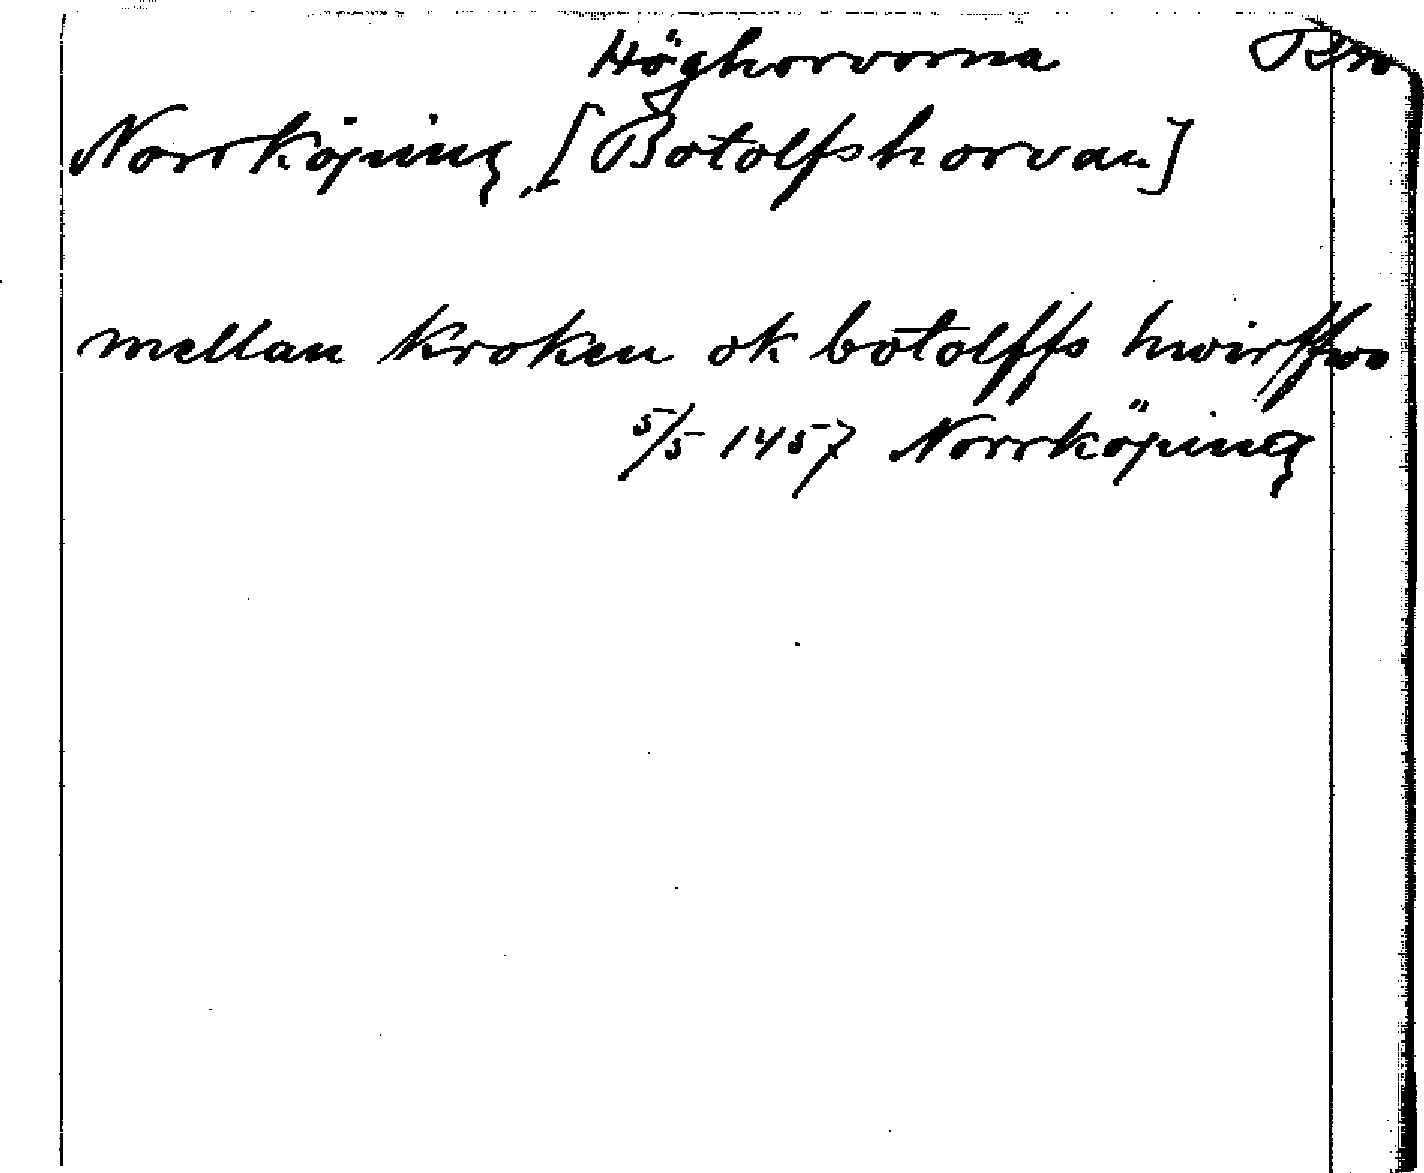 Höghorvorna Bro
Norrköping, [Botolfshorvan]
mellan kroken ok botolffs hwirffwo
5/5 1457 Norrköping